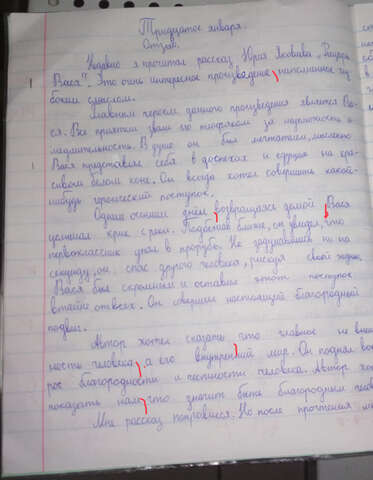 Тридцатое января.
Отзыв.
Недавно я прочитал рассказ Юрия Яковлева „Рыцарь
Вася". Это очень интересное произведение, наполненное глу-
боким смыслом.
Главным героем данного произведения является Ва-
ся. Все приятели звали его тюфяком за неуклюжесть и
медлительность. В душе он был мечтателем, мысленно
Вася представлял себя в доспехах и сидящим на кра-
сивом белом коне. Он всегда хотел совершить какой-
нибудь героический поступок.
Одним осенним днём, возвращаясь домой, Вася
услышал крик с реки. Подбежав ближе, он увидел, что
первоклассник упал в прорубь. Не задумавшись ни на
секунду, он спас другого человека, рискуя своей жизнью.
Вася был скромным и оставил этот поступок
втайне от всех. Он совершил настоящий благородный
подвиг.
Автор хотел сказать, что главное не внеш-
ность человека, а его внутренний мир. Он поднял воп-
рос благородности и честности человека. Автор хотел
показать нам, что значит быть благородным
Мне рассказ понравился. Но после прочтения